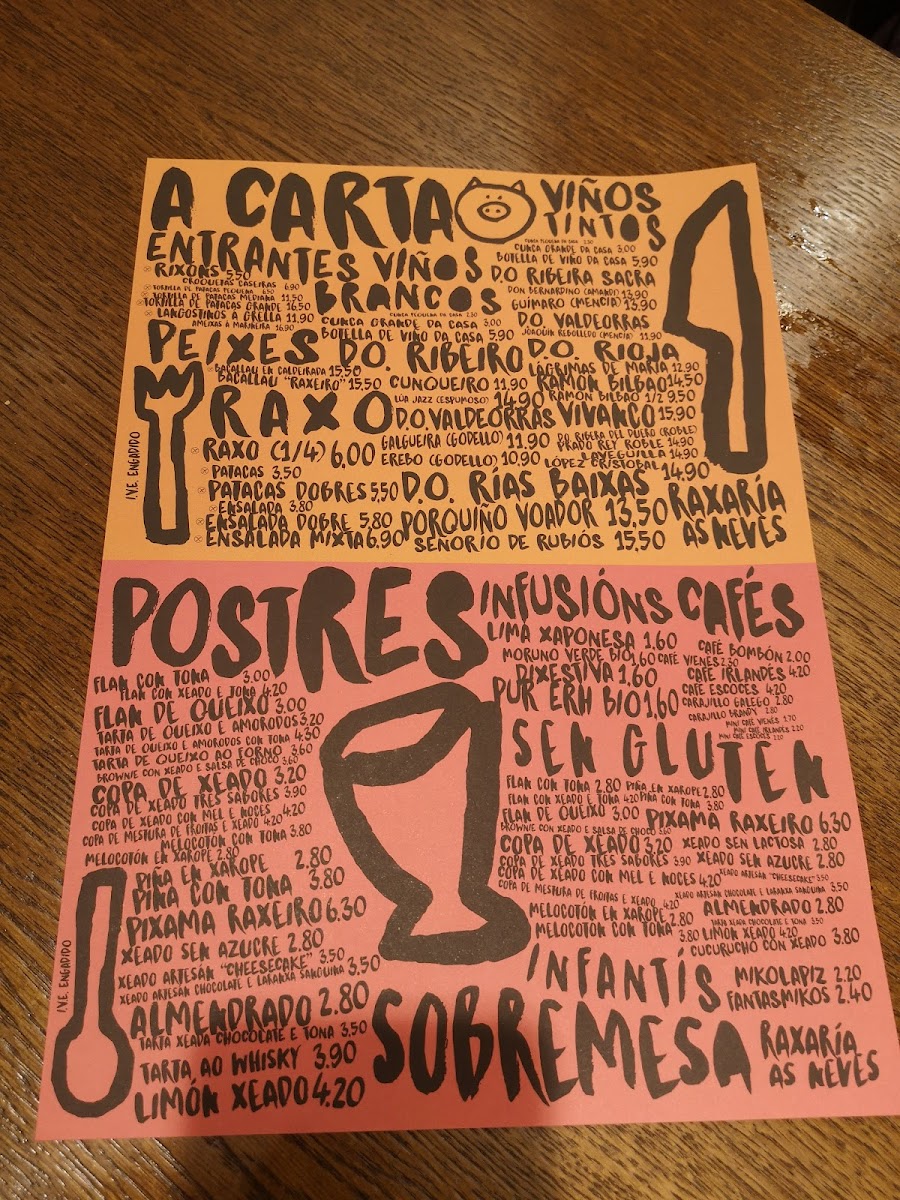 A CARTA
ENTRANTES
RIXÓNS 5,50
CROQUETAS CASEIRAS 6.90
TORTILLA DE PATACAS PEQUENA 6.50
TORTILLA DE PATACAS MEDIANA 11.50
TORTILLA DE PATACAS GRANDE 16.50
LANGOSTINOS Á GRELLA 11.90
AMEIXAS Á MARIÑEIRA 16.90
PEIXES
BACALLAU EN CALDEIRADA 15,50
BACALLAU "RAXEIRO" 15,50
RAXO
RAXO (1/4) 6,00
PATACAS 3,50
PATACAS DOBRES 5,50
ENSALADA 3.80
ENSALADA DOBRE 5,80
ENSALADA MIXTA 6.90
I.V.E. ENGADIDO
VIÑOS BRANCOS
CUNCA PEQUENA DA CASA 2.30
CUNCA GRANDE DA CASA 3.00
BOTELLA DE VIÑO DA CASA 5,90
D.O. RIBEIRO
CUNQUEIRO 11,90
LÚA JAZZ (ESPUMOSO) 14.90
D.O. VALDEORRAS
GALGUEIRA (GODELLO) 11.90
EREBO (GODELLO) 10.90
D.O. RÍAS BAIXAS
PORQUIÑO VOADOR 13,50
SEÑORÍO DE RUBIÓS 15,50
VIÑOS TINTOS
CUNCA PEQUENA DA CASA 2.30
CUNCA GRANDE DA CASA 3.00
BOTELLA DE VIÑO DA CASA 5,90
D.O RIBEIRA SACRA
DON BERNARDINO (AMANDI) 13.90
GUÍMARO (MENCÍA) 13.90
D.O VALDEORRAS
JOAQUÍN REBOLLEDO (MENCÍA) 11.90
D.O. RIOJA
LÁGRIMAS DE MARÍA 12,90
RAMÓN BILBAO 14,50
RAMÓN BILBAO 1/2 9,50
VIVANCO 15,90
D.O RIBERA DEL DUERO (ROBLE)
PRADO REY ROBLE 14.90
LAVEGUILLA 14.90
LÓPEZ CRISTOBAL 14.90
RAXARÍA
AS NEVES
POSTRES
FLAN CON TONA 3.00
FLAN CON XEADO E TONA 4.20
FLAN DE QUEIXO 3,00
TARTA DE QUEIXO E AMORODOS 3,20
TARTA DE QUEIXO E AMORODOS CON TONA 4.30
TARTA DE QUEIXO AO FORNO 3.60
BROWNIE CON XEADO E SALSA DE CHOCO 3.60
COPA DE XEADO 3,20
COPA DE XEADO TRES SABORES 3.90
COPA DE XEADO CON MEL E NOCES 4.20
COPA DE MESTURA DE FROITAS E XEADO 4.20
MELOCOTÓN CON TONA 3.80
MELOCOTÓN EN XAROPE 2.80
PIÑA EN XAROPE 2.80
PIÑA CON TONA 3.80
PIXAMA RAXEIRO 6.30
XEADO SEN AZUCRE 2.80
XEADO ARTESÁN "CHEESECAKE" 3.50
XEADO ARTESÁN CHOCOLATE E LARANXA SANGUINA 3,50
ALMENDRADO 2.80
TARTA XEADA CHOCOLATE E TONA 3,50
TARTA AO WHISKY 3.90
LIMÓN XEADO 4.20
I.V.E. ENGADIDO
INFUSIÓNS
LIMA XAPONESA 1.60
MORUNO VERDE BIO 1,60
DIXESTIVA 1.60
PUR ERH BIO 1,60
CAFÉS
CAFÉ BOMBÓN 2.00
CAFÉ VIENÉS 2.30
CAFÉ IRLANDÉS 4.20
CAFÉ ESCOCÉS 4.20
CARAJILLO GALEGO 2.80
CARAJILLO BRANDY 2.80
MINI CAFÉ VIENÉS 1.70
MINI CAFÉ IRLANDÉS 2.20
MINI CAFÉ ESCOCÉS 2.20
SEN GLUTEN
FLAN CON TONA 2.80
FLAN CON XEADO E TONA 4.20
FLAN DE QUEIXO 3,00
BROWNIE CON XEADO E SALSA DE CHOCO 3.60
COPA DE XEADO 3,20
COPA DE XEADO TRES SABORES 3.90
COPA DE XEADO CON MEL E NOCES 4.20
COPA DE MESTURA DE FROITAS E XEADO 4.20
MELOCOTÓN EN XAROPE 2.80
MELOCOTÓN CON TONA 3.80
PIÑA EN XAROPE 2.80
PIÑA CON TONA 3.80
PIXAMA RAXEIRO 6.30
XEADO SEN LACTOSA 2.80
XEADO SEN AZUCRE 2.80
XEADO ARTESÁN "CHEESECAKE" 3.50
XEADO ARTESÁN CHOCOLATE E LARANXA SANGUINA 3.50
ALMENDRADO 2.80
TARTA XEADA CHOCOLATE E TONA 3.50
LIMÓN XEADO 4.20
CUCURUCHO CON XEADO 3.80
INFANTÍS
MIKOLAPIZ 2.20
FANTASMIKOS 2.40
SOBREMESA
RAXARÍA
AS NEVES